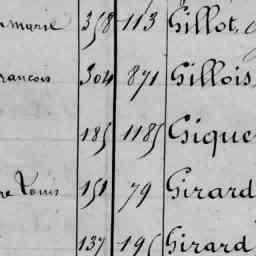 marie 358 113 Gillot
rancois 304 871 Gillois
185 1185 Gique
re Louis 151 79 Girard
137 195 Girard